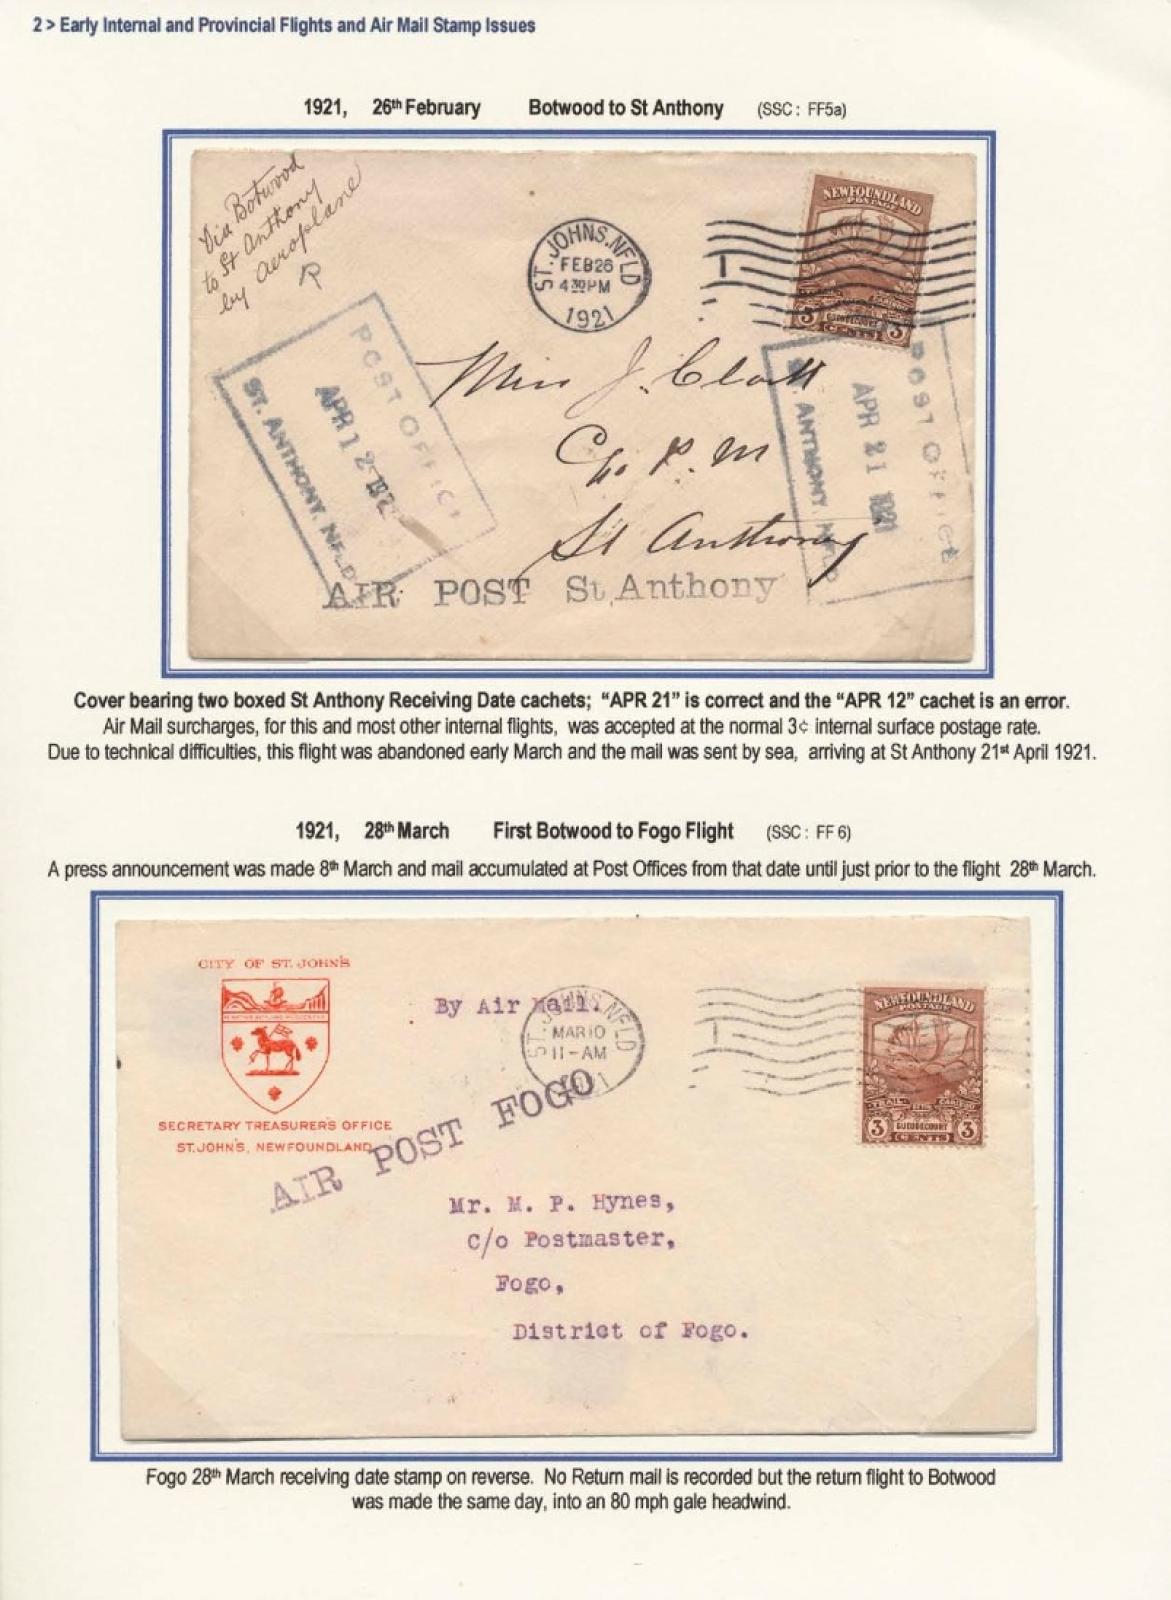 2 > Early Internal and Provincial Flights and Air Mail Stamp Issues
1921, 26th February Botwood to St Anthony (SSC: FF5a)
Via Botwood
to St Anthony
by aeroplane
R
ST. JOHNS. NFLD
FEB 26
4 30 PM
1921
NEWFOUNDLAND
POSTAGE
CARIBOU
GUEUDECOURT
3 CENTS 3
POST OFFICE
APR 12 192
ST. ANTHONY. NFLD
POST OFFICE
APR 21 1921
ST. ANTHONY. NFLD
Miss J.
c/o P. M
St Anthony
AIR POST St. Anthony
Cover bearing two boxed St Anthony Receiving Date cachets; “APR 21” is correct and the “APR 12” cachet is an error.
Air Mail surcharges, for this and most other internal flights, was accepted at the normal 3¢ internal surface postage rate.
Due to technical difficulties, this flight was abandoned early March and the mail was sent by sea, arriving at St Anthony 21st April 1921.
1921, 28th March First Botwood to Fogo Flight (SSC: FF 6)
A press announcement was made 8th March and mail accumulated at Post Offices from that date until just prior to the flight 28th March.
CITY OF ST. JOHN'S
SECRETARY TREASURER'S OFFICE
ST. JOHN'S, NEWFOUNDLAND
By Air Mail.
ST. JOHNS. NFLD
MAR 10
11-AM
NEWFOUNDLAND
POSTAGE
TRAIL OF THE CARIBOU
GUEUDECOURT
3 CENTS 3
AIR POST FOGO
Mr. M. P. Hynes,
c/o Postmaster,
Fogo,
District of Fogo.
Fogo 28th March receiving date stamp on reverse. No Return mail is recorded but the return flight to Botwood
was made the same day, into an 80 mph gale headwind.